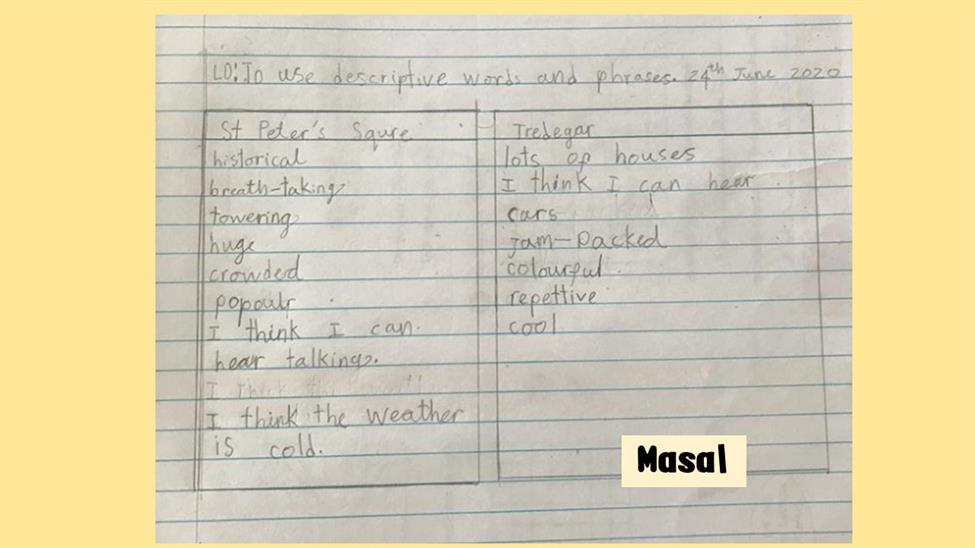 LO: To use descriptive words and phrases. 24th June 2020
St Peter's Squre
historical
breath-taking
towering
huge
crowded
popoulr
I think I can
hear talking.
I think the
I think the weather
is cold.
Tredegar
lots of houses
I think I can hear
cars
jam-packed
colourful
repettive
cool
Masal